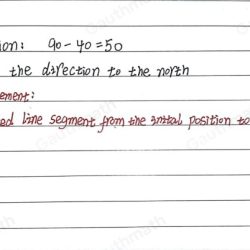 ion: 90-40=50
the direction to the north
ement:
ed line segment from the intial position to